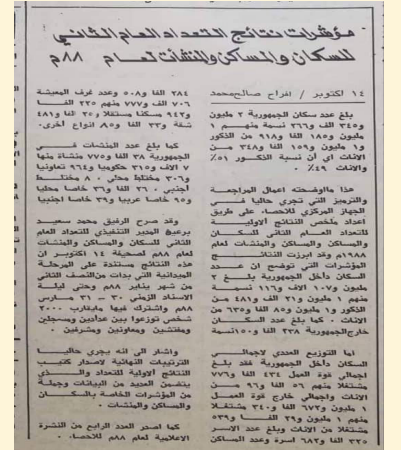 مؤشرات نتائج التعداد العام الثاني
للسكان والمساكن والمنشآت لعام ٨٨م
١٤ اكتوبر / افراح صالح محمد
بلغ عدد سكان الجمهورية ٢ مليون
و٣٤٥ الف و٢٦٦ نسمة منهم ١
مليون و١٨٥ الفا و٩١٨ من الذكور
و١ مليون و١٥٩ الفا و٣٤٨ من
الاناث اي أن نسبة الذكور ٥١٪
والاناث ٤٩٪ .
هذا ماأوضحته اعمال المراجعة
والترميز التي تجري حاليا في
الجهاز المركزي للاحصاء على طريق
اعداد ملخص النتائج الاولية
للتعداد العام الثاني للسكان
والمساكن والمنشآت لعام
١٩٨٨م وقد ابرزت النتائج
المؤشرات التي توضح ان عدد
السكان داخل الجمهورية بلغ ٢
مليون و١٠٧ الاف و١١٦ نسمة
منهم ١ مليون و٢١ الف و٤٨١ من
الذكور و١ مليون و٨٥ الفا و٦٣٥ من
الاناث . كما بلغ عدد السكان
خارج الجمهورية ٢٣٨ الفا و١٥٠ نسمة
اما التوزيع العددي لاجمالي
السكان داخل الجمهورية فقد بلغ
اجمالي قوة العمل ٤٣٤ الفا و٧٧٦
مشتغلا منهم ٥٦ الفا و٩٦ من
الاناث واجمالي خارج قوة العمل
١ مليون و٦٧٢ الفا و٣٤٠ مشتغلا
منهم ١ مليون و٢٩ الفا و٥٣٩
مشتغلا من الاناث وبلغ عدد الاسر
٣٢٥ الفا و٦٨٢ اسرة وعدد المساكن
٢٨٤ الفا و٥٠٨ وعدد غرف المعيشة
٧٠٦ الف و٧٧٧ منهم ٢٢٥ الفا
و٩٤٢ مسكنا مستقلا و٢٥ الفا و٤٨١
شقة و٣٣ الفا و٨٥ انواع أخرى.
كما بلغ عدد المنشآت في
الجمهورية ٣٨ الفا و٧٧٥ منشأة منها
٧ الاف و٣١٥ حكوميا و٩٦٤ تعاونيا
و٣٠٦ مختلط محلي . ٨٠ مختلط
أجنبي . ٢٦ الفا و٣٦ خاصا محليا
و٩٥ خاصا عربيا و٣٩ خاصا اجنبيا
وقد صرح الرفيق محمد سعيد
المدير التنفيذي للتعداد العام
الثاني للسكان والمساكن والمنشآت
لعام ٨٨م لصحيفة ١٤ اكتوبر ان
هذه النتائج مستندة على المرحلة
الميدانية التي بدات من النصف الثاني
من شهر يناير ٨٨م وحتى ليلة
الاسناد الزمني ٣٠ - ٣١ مارس
٨٨م واشترك فيها مايقارب ٢٠٠٠
شخص توزعوا بين عدادين ومسجلين
ومفتشين ومعاونين ومشرفين .
واشار الى انه يجري حاليا
الترتيبات النهائية لاصدار كتيب
النتائج الاولية للتعداد والذي
يتضمن العديد من البيانات وجملة
من المؤشرات الخاصة بالسكان
والمساكن والمنشآت .
كما اصدر العدد الرابع من النشرة
الاعلامية لعام ٨٨م للاحصاء .